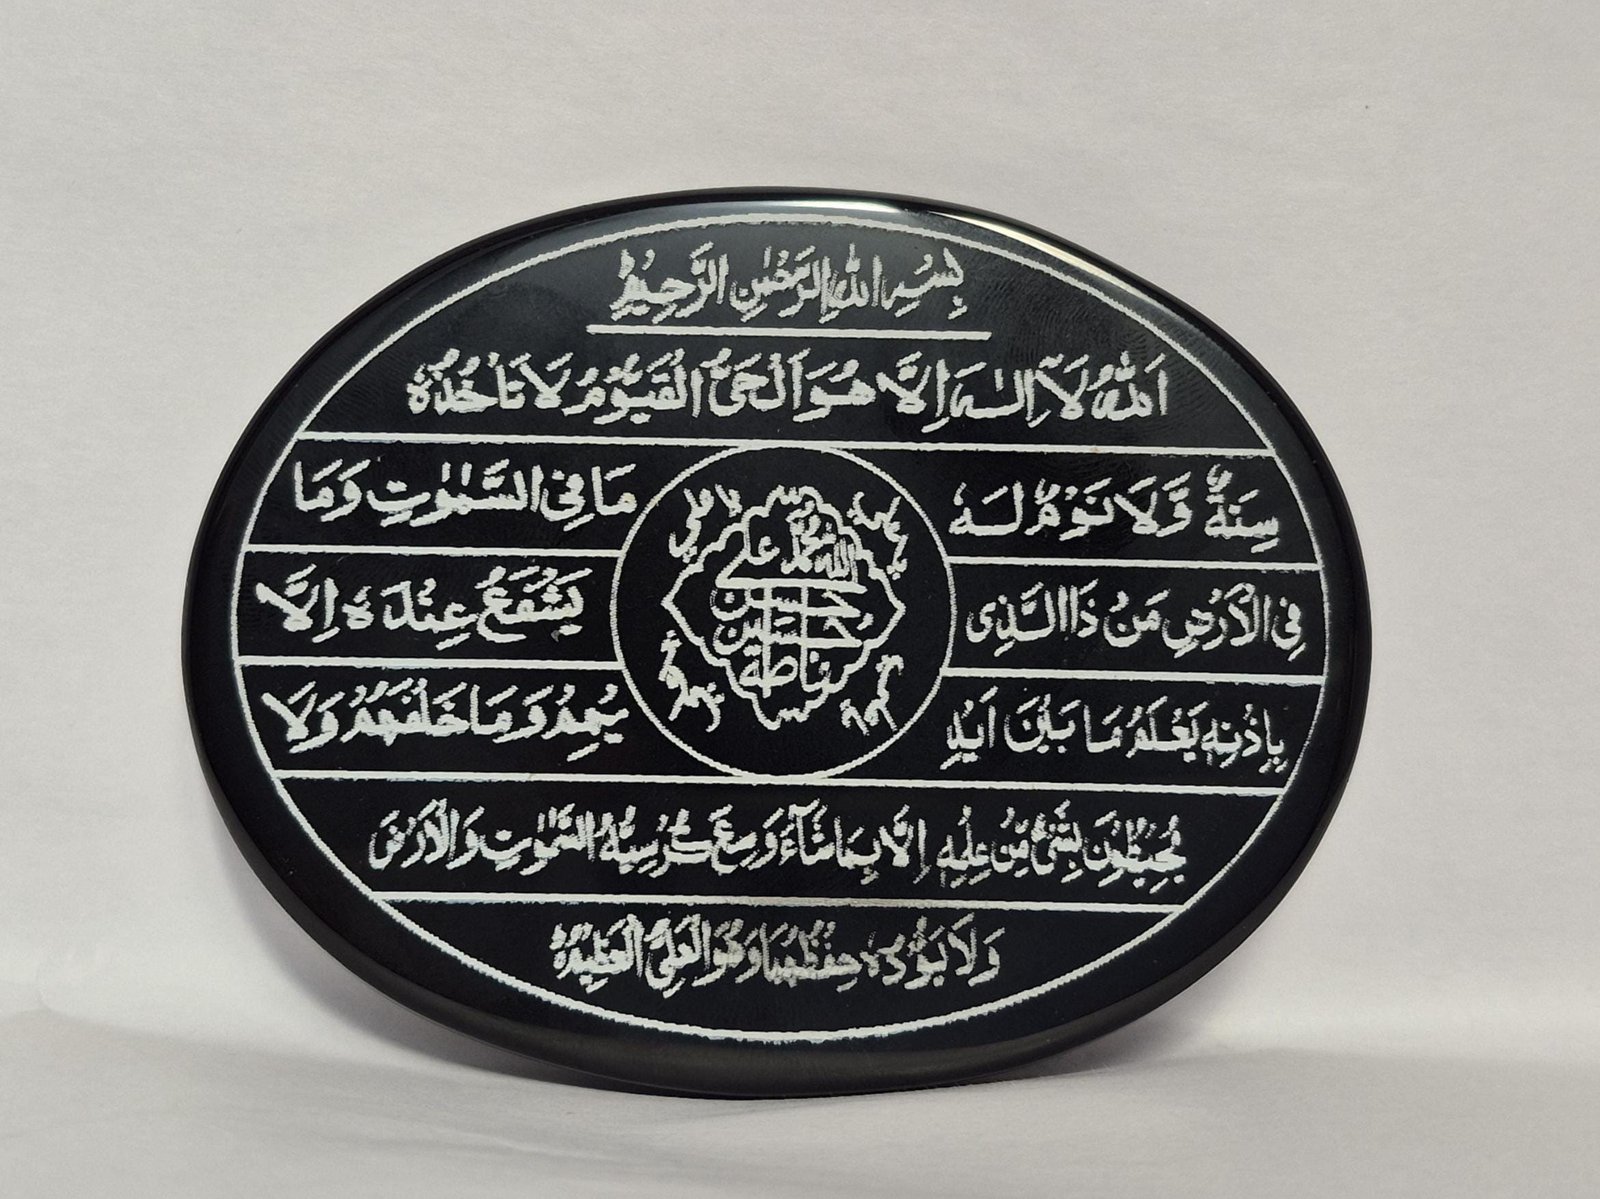 بِسْمِ اللهِ الرَّحْمٰنِ الرَّحِيْمِ
اَللهُ لَآ اِلٰهَ اِلَّا هُوَ اَلْحَیُّ الْقَيُّوْمُ لَا تَاْخُذُهٗ
سِنَةٌ وَّلَا نَوْمٌ لَهٗ مَا فِی السَّمٰوٰتِ وَمَا
فِی الْاَرْضِ مَنْ ذَا الَّذِی يَشْفَعُ عِنْدَهٗ اِلَّا
بِاِذْنِهٖ يَعْلَمُ مَا بَيْنَ اَيْدِ يْهِمْ وَمَا خَلْفَهُمْ وَلَا
يُحِيْطُوْنَ بِشَیْءٍ مِّنْ عِلْمِهٖ اِلَّا بِمَا شَآءَ وَسِعَ كُرْسِيُّهُ السَّمٰوٰتِ وَالْاَرْضَ
وَلَا يَؤُدُهٗ حِفْظُهُمَا وَهُوَ الْعَلِیُّ الْعَظِيْمُ
يا علي
الله محمد علي
حسن
حسين
فاطمة